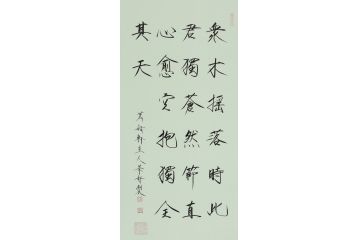 衆木摇落時此
君獨蒼然節直
心愈空抱獨全
其天
軒主人